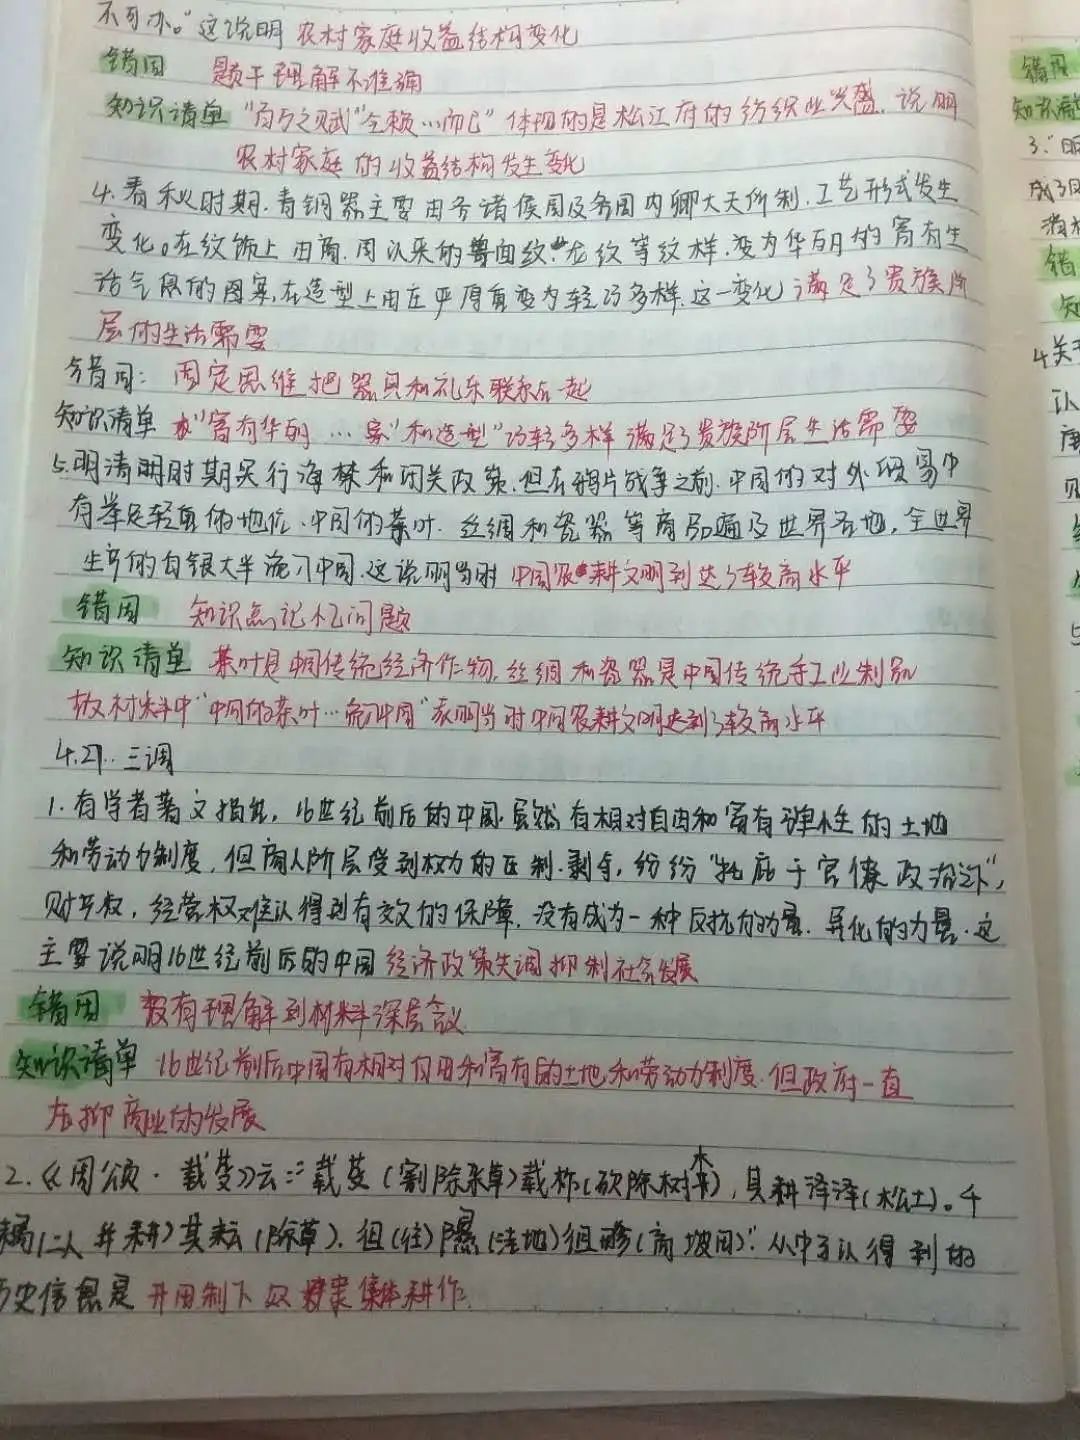 不可办。"这说明 农村家庭收益结构变化
错因 题干理解不准确
知识清单 "百万之赋""全赖…而已"体现的是松江府的纺织业兴盛. 说明
农村家庭的收益结构发生变化
4. 春秋时期. 青铜器主要由各诸侯国及各国内卿大夫所制. 工艺形式发生
变化。在纹饰上由商.周以来的兽面纹.龙纹等纹样.变为华丽的富有生
活气息的图案,在造型上由庄严厚重变为轻巧多样.这一变化 满足了贵族阶
层的生活需要
错因: 固定思维把器具和礼乐联系在一起
知识清单 "富有华丽…案"和造型"巧轻多样 满足了贵族阶层生活需要
5.明清时期实行海禁和闭关政策.但在鸦片战争之前.中国的对外贸易中
有举足轻重的地位.中国的茶叶.丝绸和瓷器等商品遍及世界各地,全世界
生产的白银大半流入中国.这说明当时 中国农耕文明到达了较高水平
错因 知识点记忆问题
知识清单 茶叶是中国传统经济作物,丝绸和瓷器是中国传统手工业制品
故材料中"中国的茶叶…流入中国"表明当时中国农耕文明达到了较高水平
4.27. 三调
1. 有学者著文指出, 16世纪前后的中国.虽然有相对自由和富有弹性的土地
和劳动力制度, 但商人阶层受到权力的压制.剥夺, 纷纷"托庇于官僚政治之下",
财产权, 经营权难以得到有效的保障. 没有成为一种反抗的力量.异化的力量.这
主要说明16世纪前后的中国 经济政策失调抑制社会发展
错因 没有理解到材料深层含义
知识清单 16世纪前后中国有相对自由和富有的土地和劳动力制度.但政府一直
在抑商业的发展
2.《周颂·载芟》云:"载芟(割除杂草)载柞(砍除树木),其耕泽泽(松土)。千
耦(二人并耕)其耘(除草). 徂(往)隰(洼地)徂畛(高坡田)".从中可以得到的
历史信息是 井田制下 集体耕作
错因
知识清
3."明
成了
错
知
4关于
认